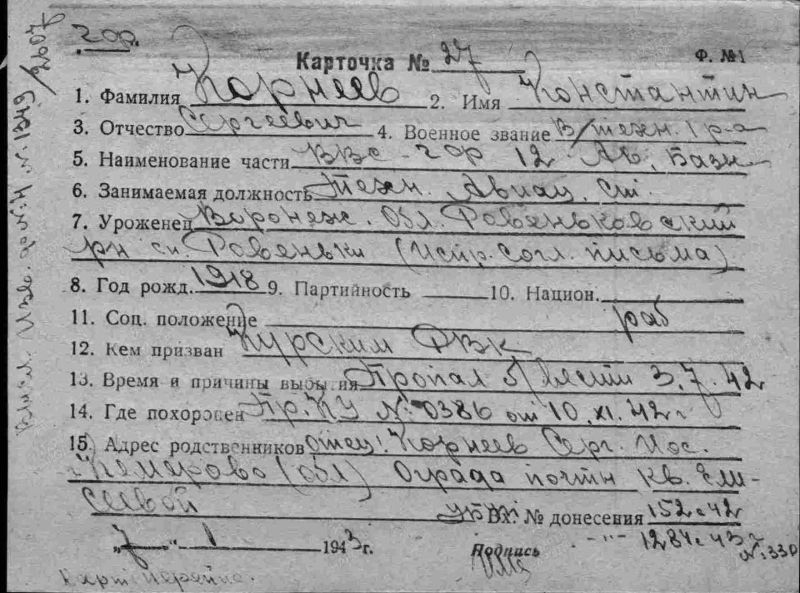 Чор.
Карточка № 27 Ф. №1
1. Фамилия Корнеев 2. Имя Константин
3. Отчество Сергеевич 4. Военное звание В/техн. 1 р-а
5. Наименование части ВВС - Чор 12 Ав. Базн
6. Занимаемая должность Техн. Авиац. ст.
7. Уроженец Воронеж. Обл. Ровеньковский
рн сл. Ровеньки (Испр. согл. письма)
8. Год рожд. 1918 9. Партийность 10. Национ.
11. Соц. положение раб
12. Кем призван Курским РВК
13. Время и причины выбытия Пропал б/вести 3.7.42
14. Где похоронен Пр. КУ № 0386 от 10.XI.42 г
15. Адрес родственников отец: Корнеев Серг. Иос.
г Кемерово (обл) Ограда почты кв. Ели-
сеевой
Вх. № донесения 152с-42
"7" 1 1943 г. -"- 1284с 43 г
Подпись № 330